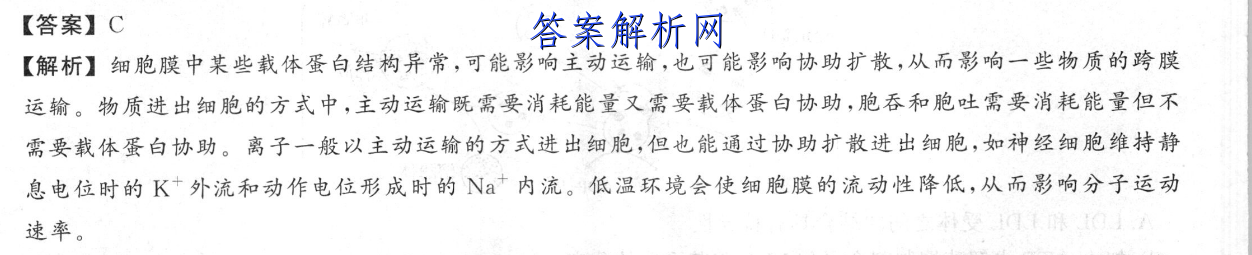 【答案】C
答案解析网
【解析】细胞膜中某些载体蛋白结构异常,可能影响主动运输,也可能影响协助扩散,从而影响一些物质的跨膜
运输。物质进出细胞的方式中,主动运输既需要消耗能量又需要载体蛋白协助,胞吞和胞吐需要消耗能量但不
需要载体蛋白协助。离子一般以主动运输的方式进出细胞,但也能通过协助扩散进出细胞,如神经细胞维持静
息电位时的 K⁺ 外流和动作电位形成时的 Na⁺ 内流。低温环境会使细胞膜的流动性降低,从而影响分子运动
速率。